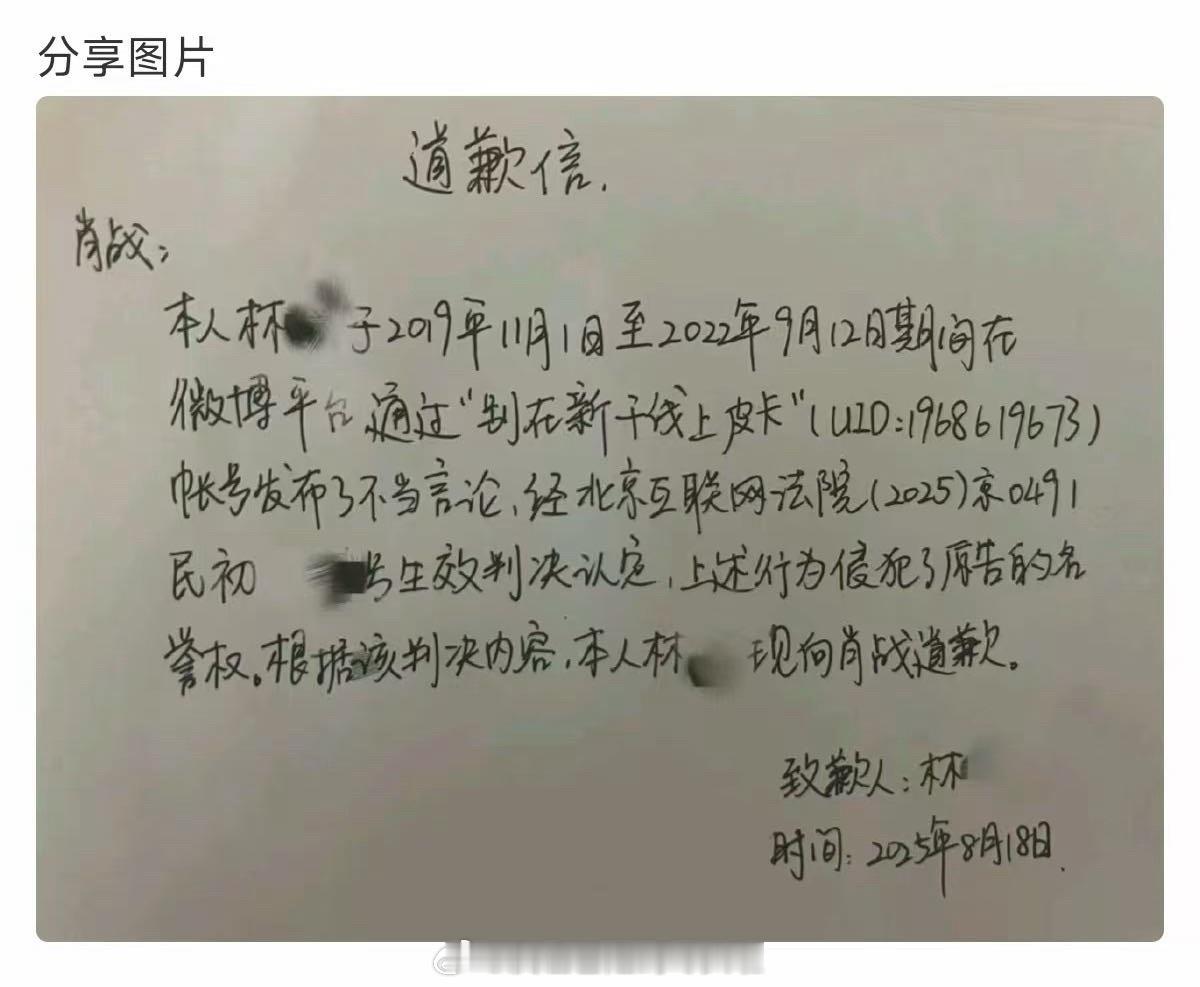 分享图片
道歉信.
肖战:
本人林 于2019年11月1日至2022年9月12日期间在
微博平台通过“别在新干线上皮卡”(UID:1968619673)
帐号发布了不当言论,经北京互联网法院(2025)京0491
民初 号生效判决认定,上述行为侵犯了原告的名
誉权。根据该判决内容,本人林 现向肖战道歉。
致歉人:林
时间:2025年8月18日.